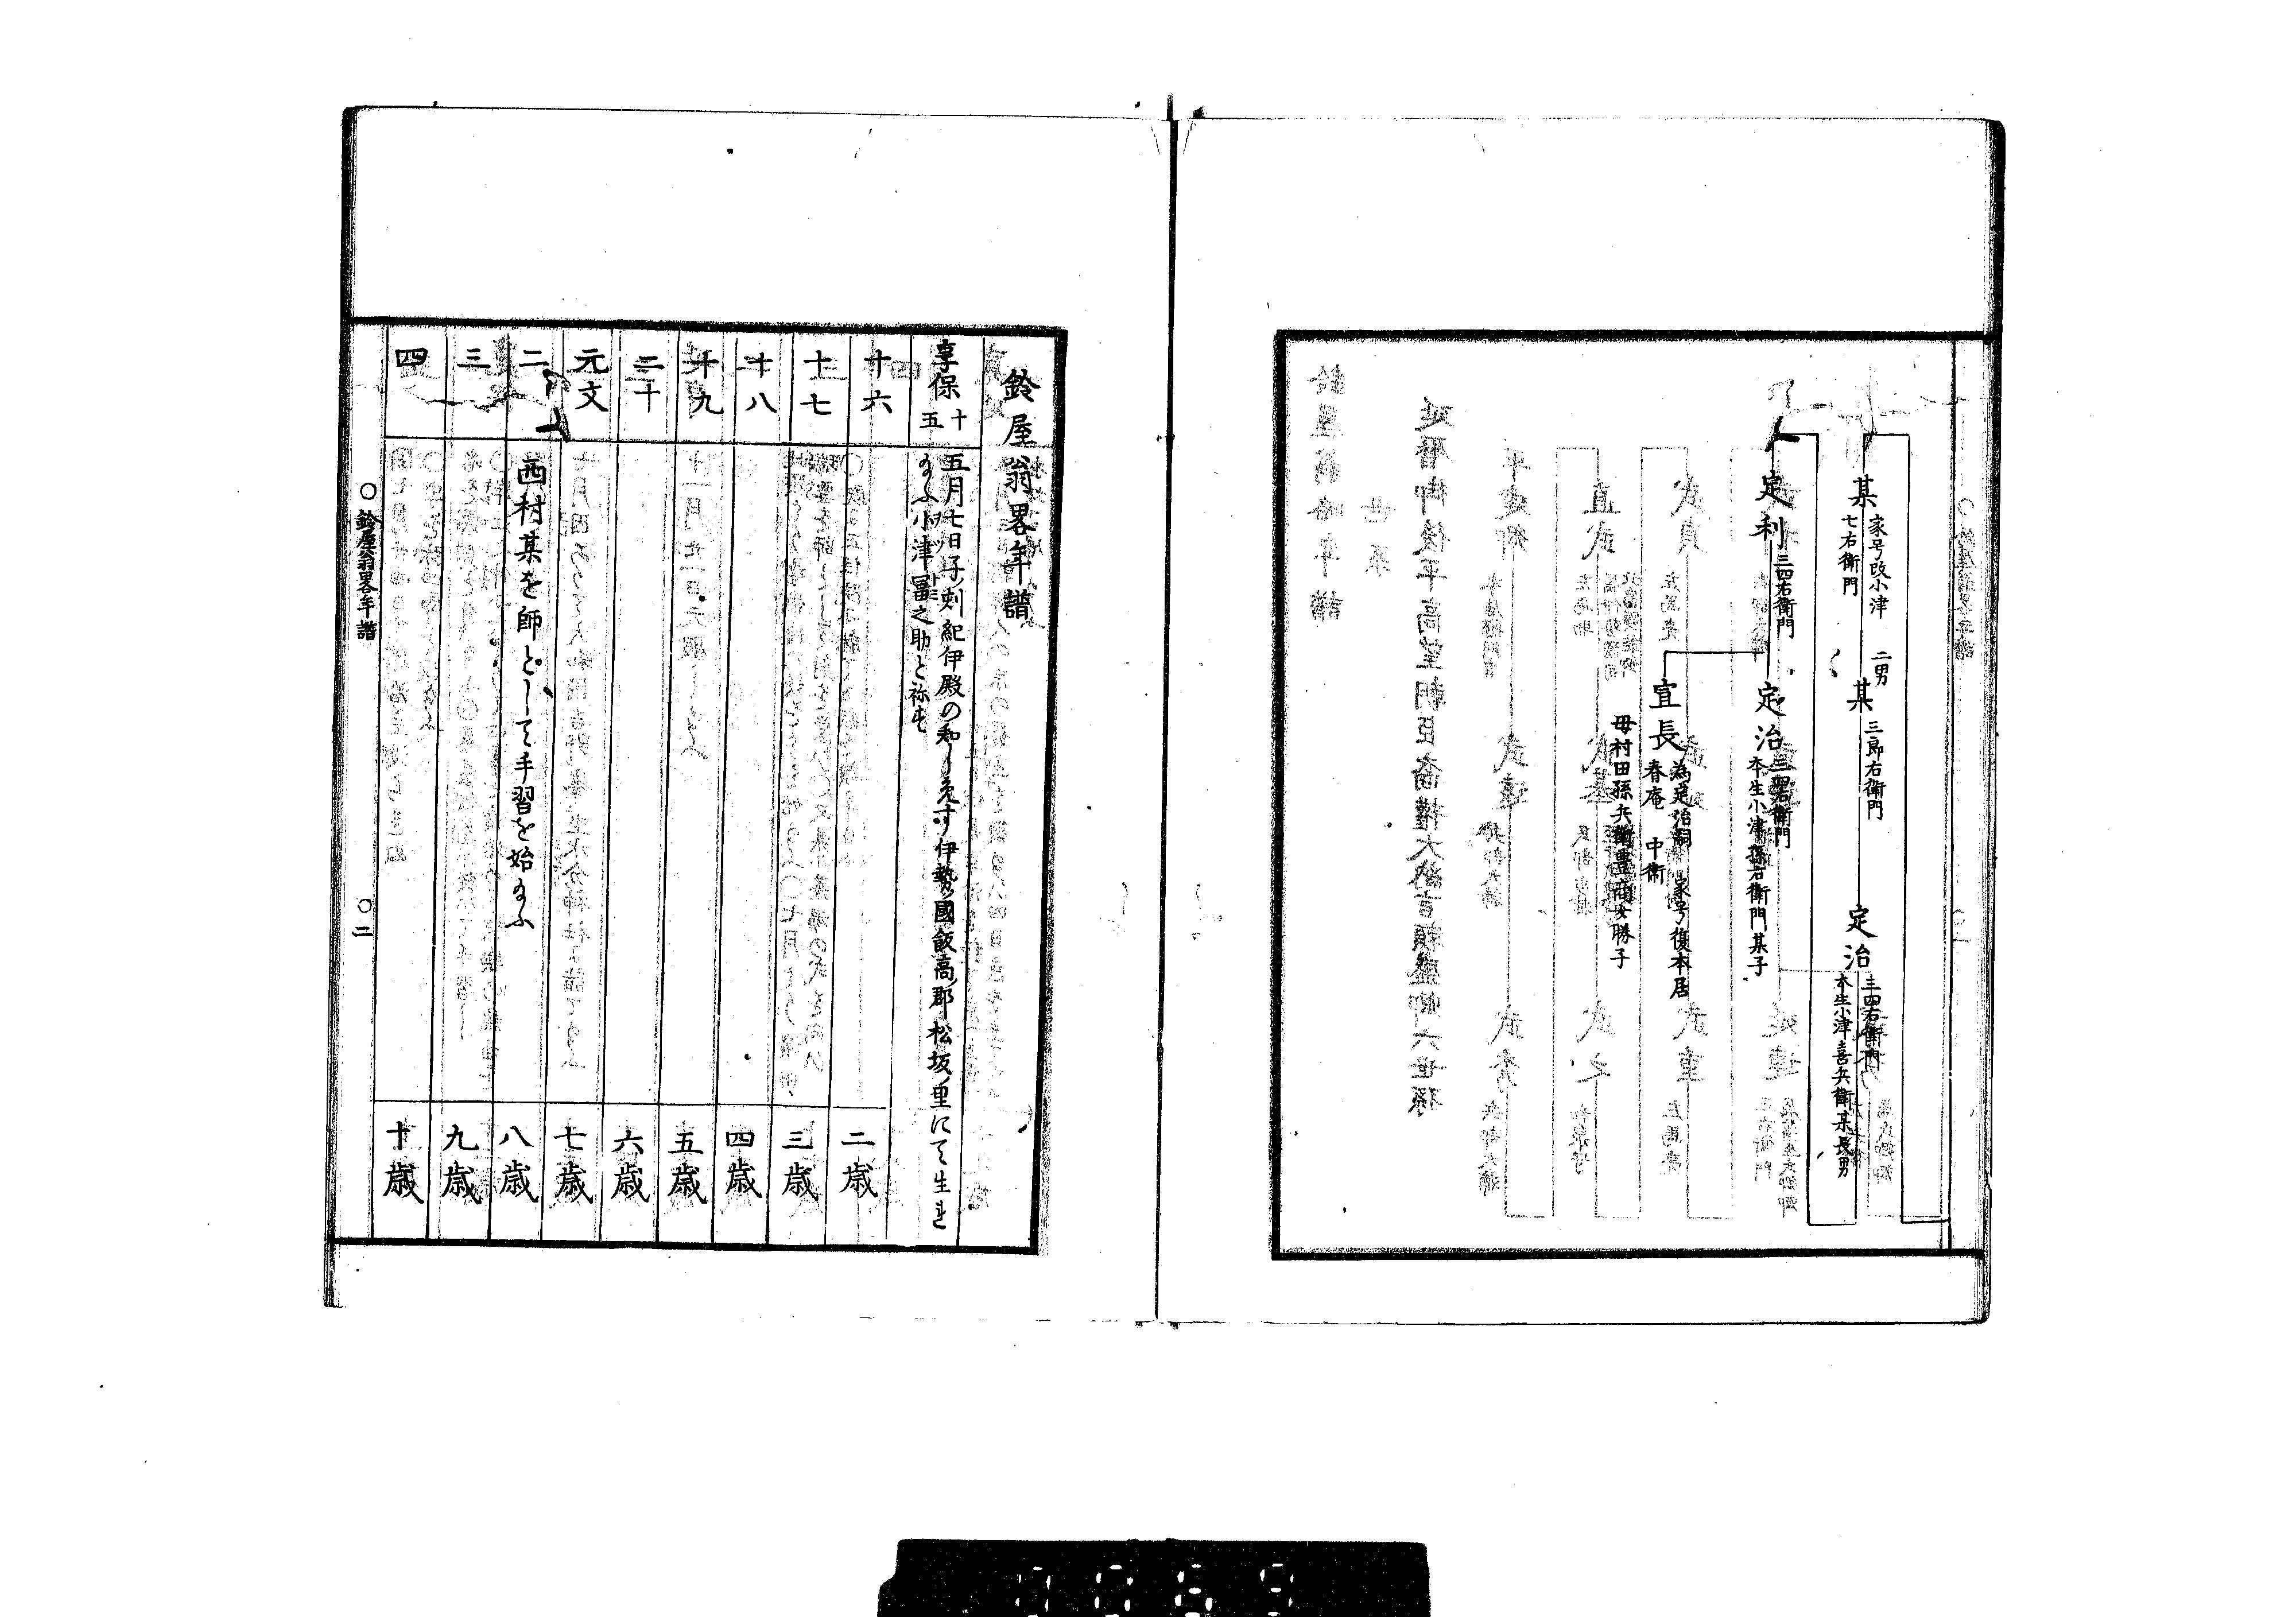 某
家号改小津
七右衛門
二男
某
三郎右衛門
定治
三四右衛門
本生小津喜兵衛某長男
定利
三四右衛門
定治
三四右衛門
本生小津孫右衛門某子
宣長
為定治嗣 家号復本居
春庵 中衛
母村田孫兵衛豊商女勝子
鈴屋翁畧年譜
享保十五
五月七日子ノ刻紀伊殿の知しめす伊勢ノ國飯高ノ郡松坂ノ里にて生れ
給ふ小津冨之助と称す
十六
二歳
十七
三歳
十八
四歳
十九
五歳
二十
六歳
元文
七歳
二
西村某を師として手習を始給ふ
八歳
三
九歳
四
十歳
○鈴屋翁畧年譜
○二